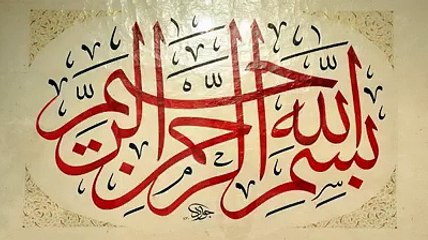 بِسْمِ اللّٰهِ الرَّحْمٰنِ الرَّحِيمِ
جواد